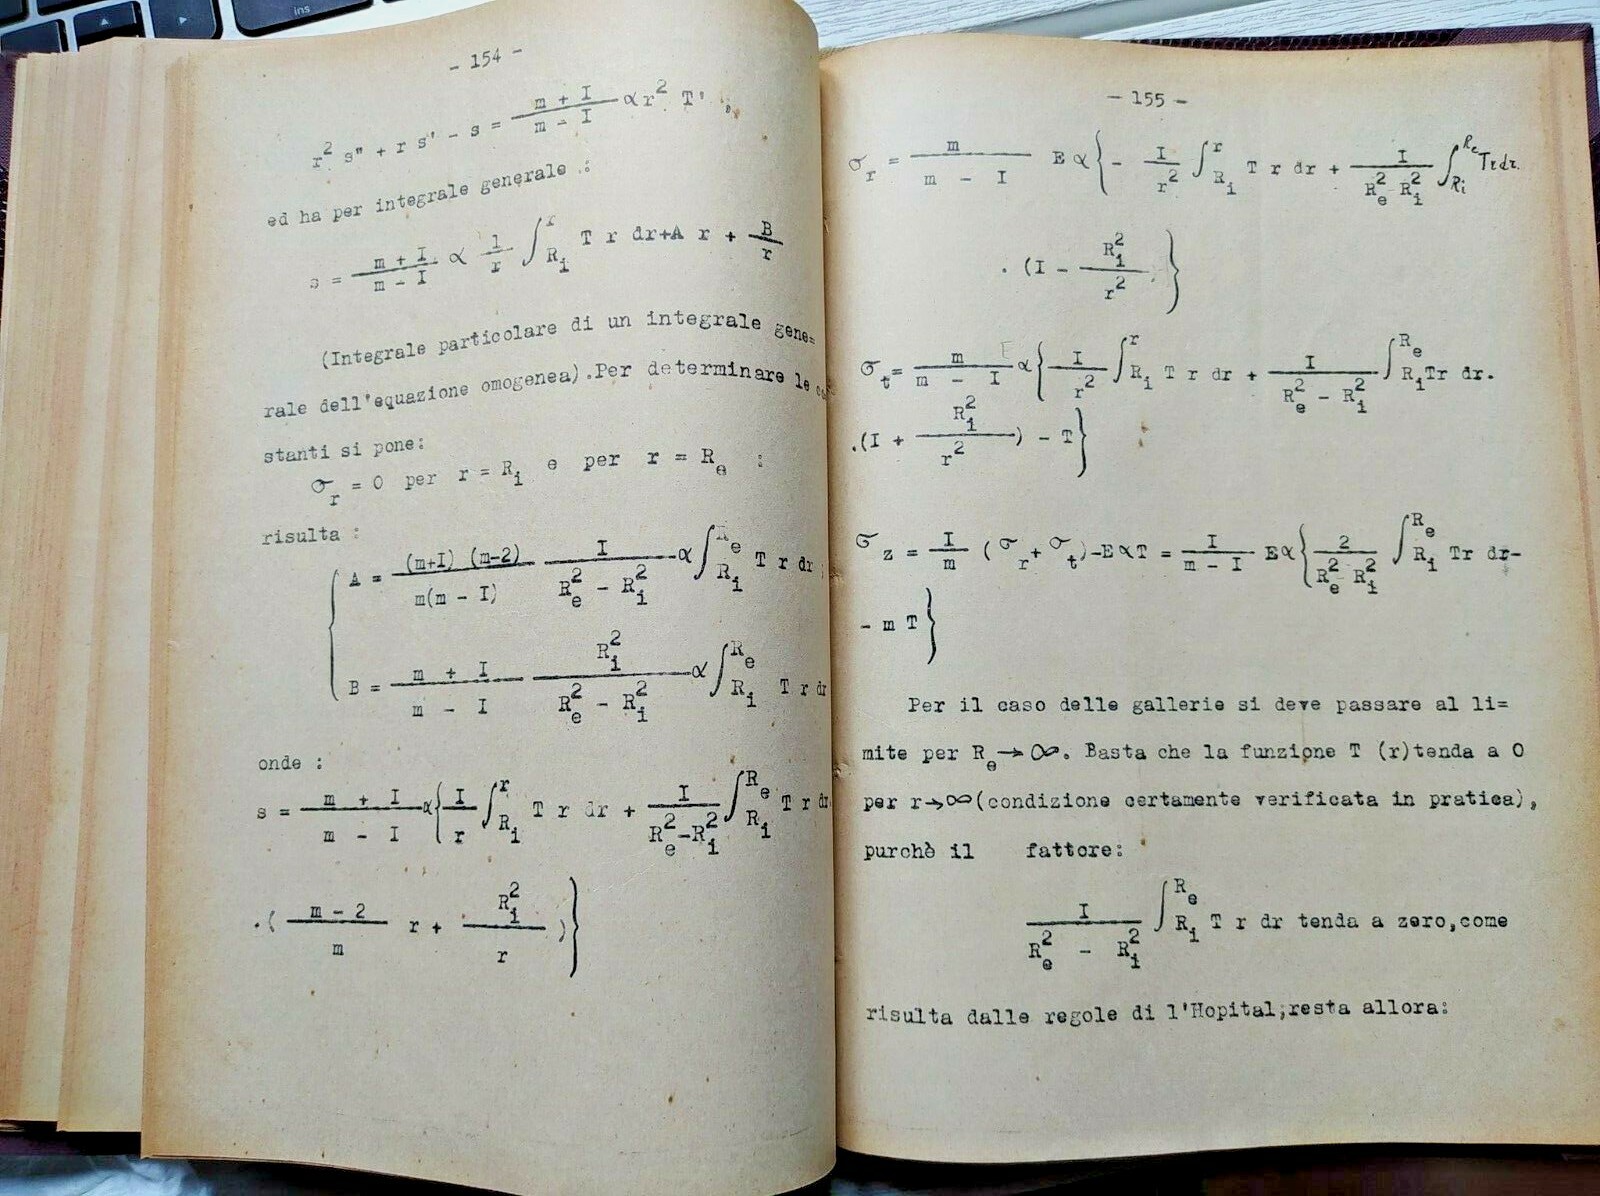 ins
- 154 -
r² s" + r s' - s = \frac{m + I}{m - I} ∝ r² T' ,
ed ha per integrale generale :
s = \frac{m + I}{m - I} ∝ \frac{1}{r} ∫_{R_i}^{r} T r dr+A r + \frac{B}{r}
(Integrale particolare di un integrale gene=
rale dell'equazione omogenea).Per determinare le co
stanti si pone:
σ_r = 0 per r = R_i e per r = R_e :
risulta :
A = \frac{(m+I) (m-2)}{m(m - I)} \frac{I}{R_e^2 - R_i^2} ∝ ∫_{R_i}^{R_e} T r dr ;
B = \frac{m + I}{m - I} \frac{R_i^2}{R_e^2 - R_i^2} ∝ ∫_{R_i}^{R_e} T r dr
onde :
s = \frac{m + I}{m - I} ∝ { \frac{I}{r} ∫_{R_i}^{r} T r dr + \frac{I}{R_e^2-R_i^2} ∫_{R_i}^{R_e} T r dr
.( \frac{m - 2}{m} r + \frac{R_i^2}{r} ) }
- 155 -
σ_r = \frac{m}{m - I} E ∝ { - \frac{I}{r^2} ∫_{R_i}^{r} T r dr + \frac{I}{R_e^2-R_i^2} ∫_{R_i}^{R_e} T r dr.
. (I - \frac{R_i^2}{r^2} ) }
σ_t= \frac{m}{m - I} E ∝ { \frac{I}{r^2} ∫_{R_i}^{r} T r dr + \frac{I}{R_e^2 - R_i^2} ∫_{R_i}^{R_e} Tr dr.
.(I + \frac{R_i^2}{r^2} ) - T }
σ_z = \frac{I}{m} (σ_r+ σ_t)-E∝T = \frac{I}{m - I} E∝ { \frac{2}{R_e^2-R_i^2} ∫_{R_i}^{R_e} Tr dr-
- m T }
Per il caso delle gallerie si deve passare al li=
mite per R_e → ∞. Basta che la funzione T (r)tenda a 0
per r→∞(condizione certamente verificata in pratica),
purchè il fattore:
\frac{I}{R_e^2 - R_i^2} ∫_{R_i}^{R_e} T r dr tenda a zero,come
risulta dalle regole di l'Hopital;resta allora: